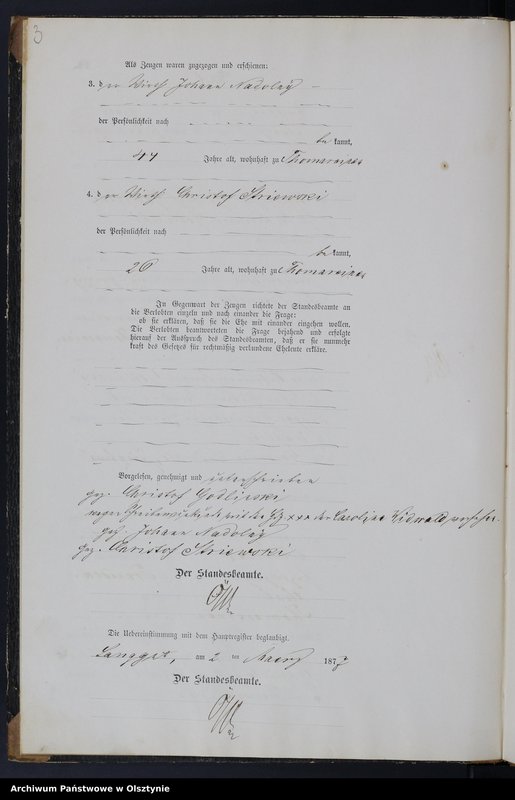 3
Als Zeugen waren zugezogen und erschienen:
3. der Wirth Johann Nadolny
der Persönlichkeit nach
be kannt,
47 Jahre alt, wohnhaft zu
4. der Wirth Christof Striewski
der Persönlichkeit nach
be kannt,
26 Jahre alt, wohnhaft zu
In Gegenwart der Zeugen richtete der Standesbeamte an
die Verlobten einzeln und nach einander die Frage:
ob sie erklären, daß sie die Ehe mit einander eingehen wollen.
Die Verlobten beantworteten die Frage bejahend und erfolgte
hierauf der Ausspruch des Standesbeamten, daß er sie nunmehr
kraft des Gesetzes für rechtmäßig verbundene Eheleute erkläre.
Vorgelesen, genehmigt und unterschrieben
gez. Christof Godlinski
wegen xxx der Caroline versehen.
gez. Johann Nadolny
gez. Christof Striewski
Der Standesbeamte.
Die Uebereinstimmung mit dem Hauptregister beglaubigt.
Langgut, am 2 ten März 187
Der Standesbeamte.
Archiwum Państwowe w Olsztynie